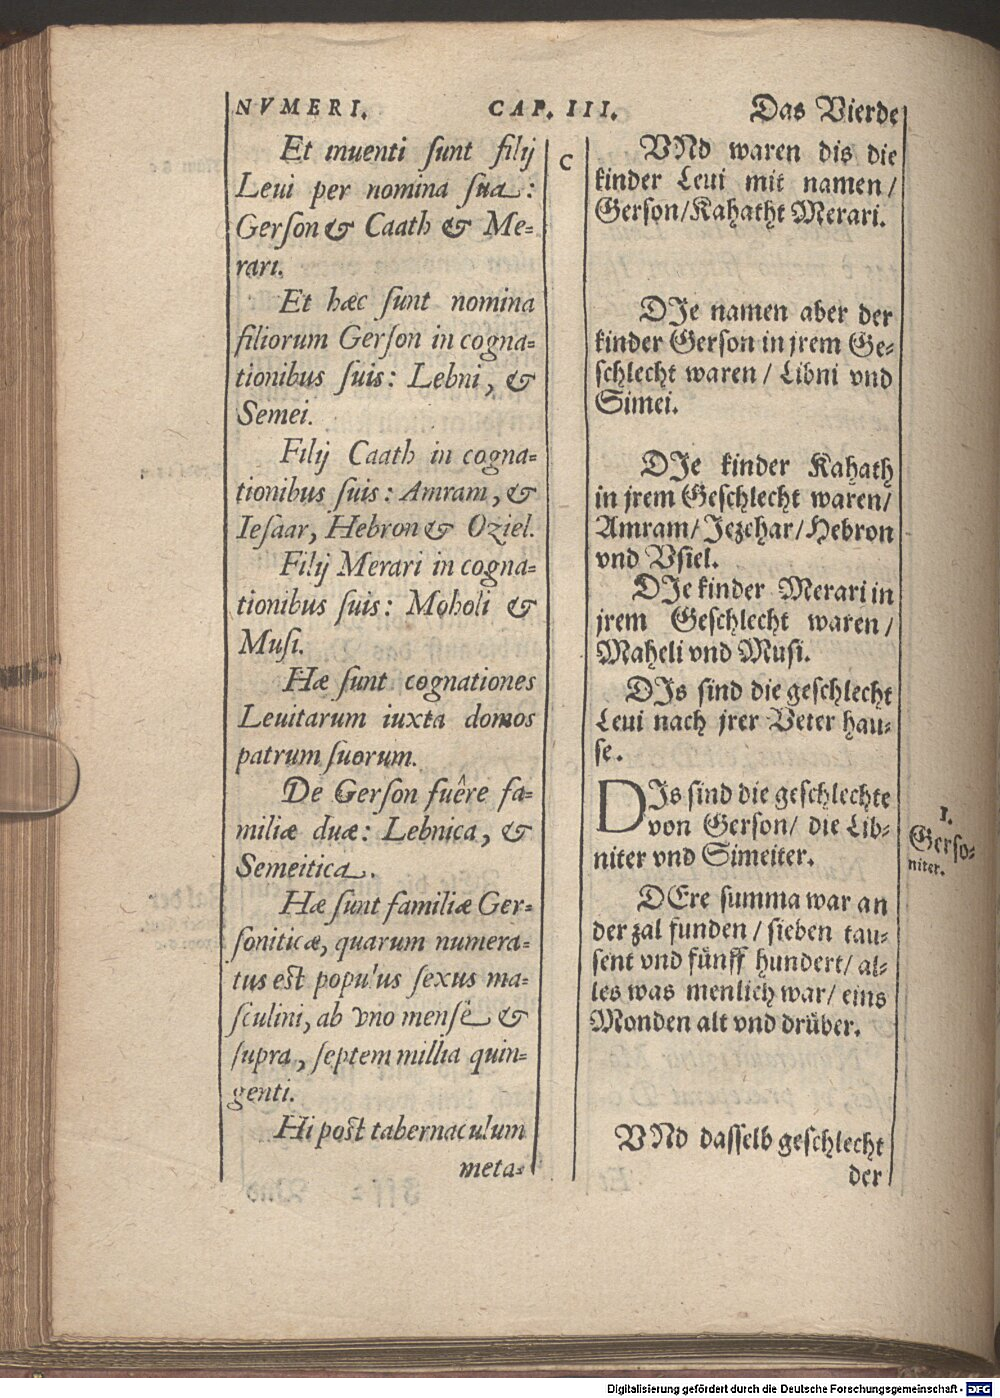 NVMERI. CAP. III. Das Vierde
Et inuenti sunt filij
Leui per nomina sua:
Gerson & Caath & Me-
rari.
Et hæc sunt nomina
filiorum Gerson in cogna-
tionibus suis: Lebni, &
Semei.
Filij Caath in cogna-
tionibus suis: Amram, &
Iesaar, Hebron & Oziel.
Filij Merari in cogna-
tionibus suis: Moholi &
Musi.
Hæ sunt cognationes
Leuitarum iuxta domos
patrum suorum.
De Gerson fuêre fa-
miliæ duæ: Lebnica, &
Semeitica.
Hæ sunt familiæ Ger-
soniticæ, quarum numera-
tus est populus sexus ma-
sculini, ab vno mense &
supra, septem millia quin-
genti.
Hi post tabernaculum
meta-
C
VNd waren dis die
kinder Leui mit namen/
Gerson/Kahatht Merari.
DIe namen aber der
kinder Gerson in jrem Ge-
schlecht waren/ Libni vnd
Simei.
DIe kinder Kahath
in jrem Geschlecht waren/
Amram/ Jezehar/ Hebron
vnd Vsiel.
DIe kinder Merari in
jrem Geschlecht waren/
Maheli vnd Musi.
DIs sind die geschlecht
Leui nach jrer Veter hau-
se.
DIs sind die geschlechte
von Gerson/ die Lib-
niter vnd Simeiter.
DEre summa war an
der zal funden/ sieben tau-
sent vnd fünff hundert/ al-
les was menlich war/ eins
Monden alt vnd drüber.
VNd dasselb geschlecht
der
I.
Gerso-
niter.
Digitalisierung gefördert durch die Deutsche Forschungsgemeinschaft - DFG